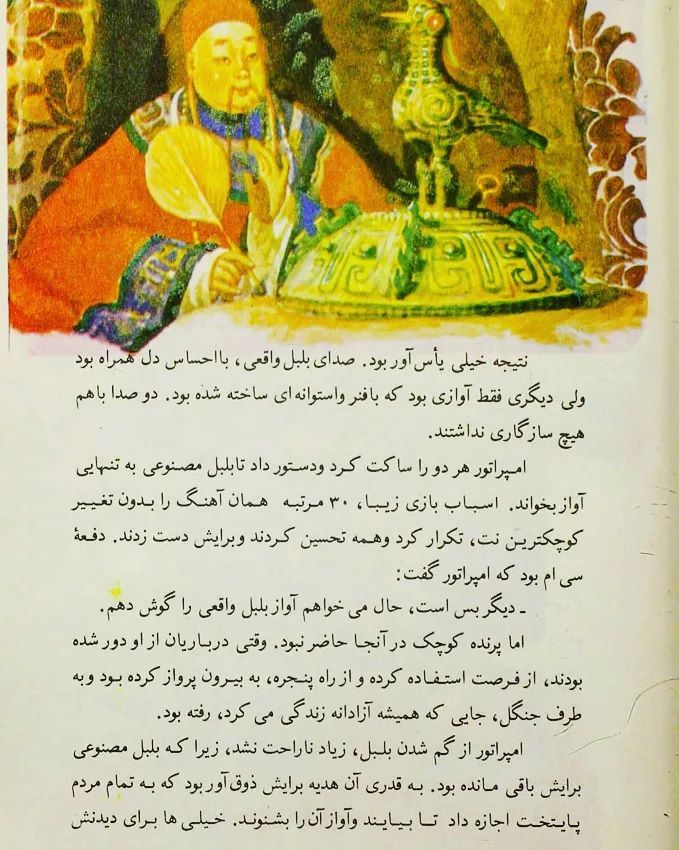 نتیجه خیلی یأس‌آور بود. صدای بلبل واقعی، با احساس دل همراه بود
ولی دیگری فقط آوازی بود که با فنر و استوانه‌ای ساخته شده بود. دو صدا باهم
هیچ سازگاری نداشتند.
امپراتور هر دو را ساکت کرد و دستور داد تا بلبل مصنوعی به تنهایی
آواز بخواند. اسباب بازی زیبا، ۳۰ مرتبه همان آهنگ را بدون تغییر
کوچکترین نت، تکرار کرد و همه تحسین کردند و برایش دست زدند. دفعهٔ
سی ام بود که امپراتور گفت:
ـ دیگر بس است، حال می خواهم آواز بلبل واقعی را گوش دهم.
اما پرنده کوچک در آنجا حاضر نبود. وقتی درباریان از او دور شده
بودند، از فرصت استفاده کرده و از راه پنجره، به بیرون پرواز کرده بود و به
طرف جنگل، جایی که همیشه آزادانه زندگی می کرد، رفته بود.
امپراتور از گم شدن بلبل، زیاد ناراحت نشد، زیرا که بلبل مصنوعی
برایش باقی مانده بود. به قدری آن هدیه برایش ذوق‌آور بود که به تمام مردم
پایتخت اجازه داد تا بیایند و آواز آن را بشنوند. خیلی ها برای دیدنش